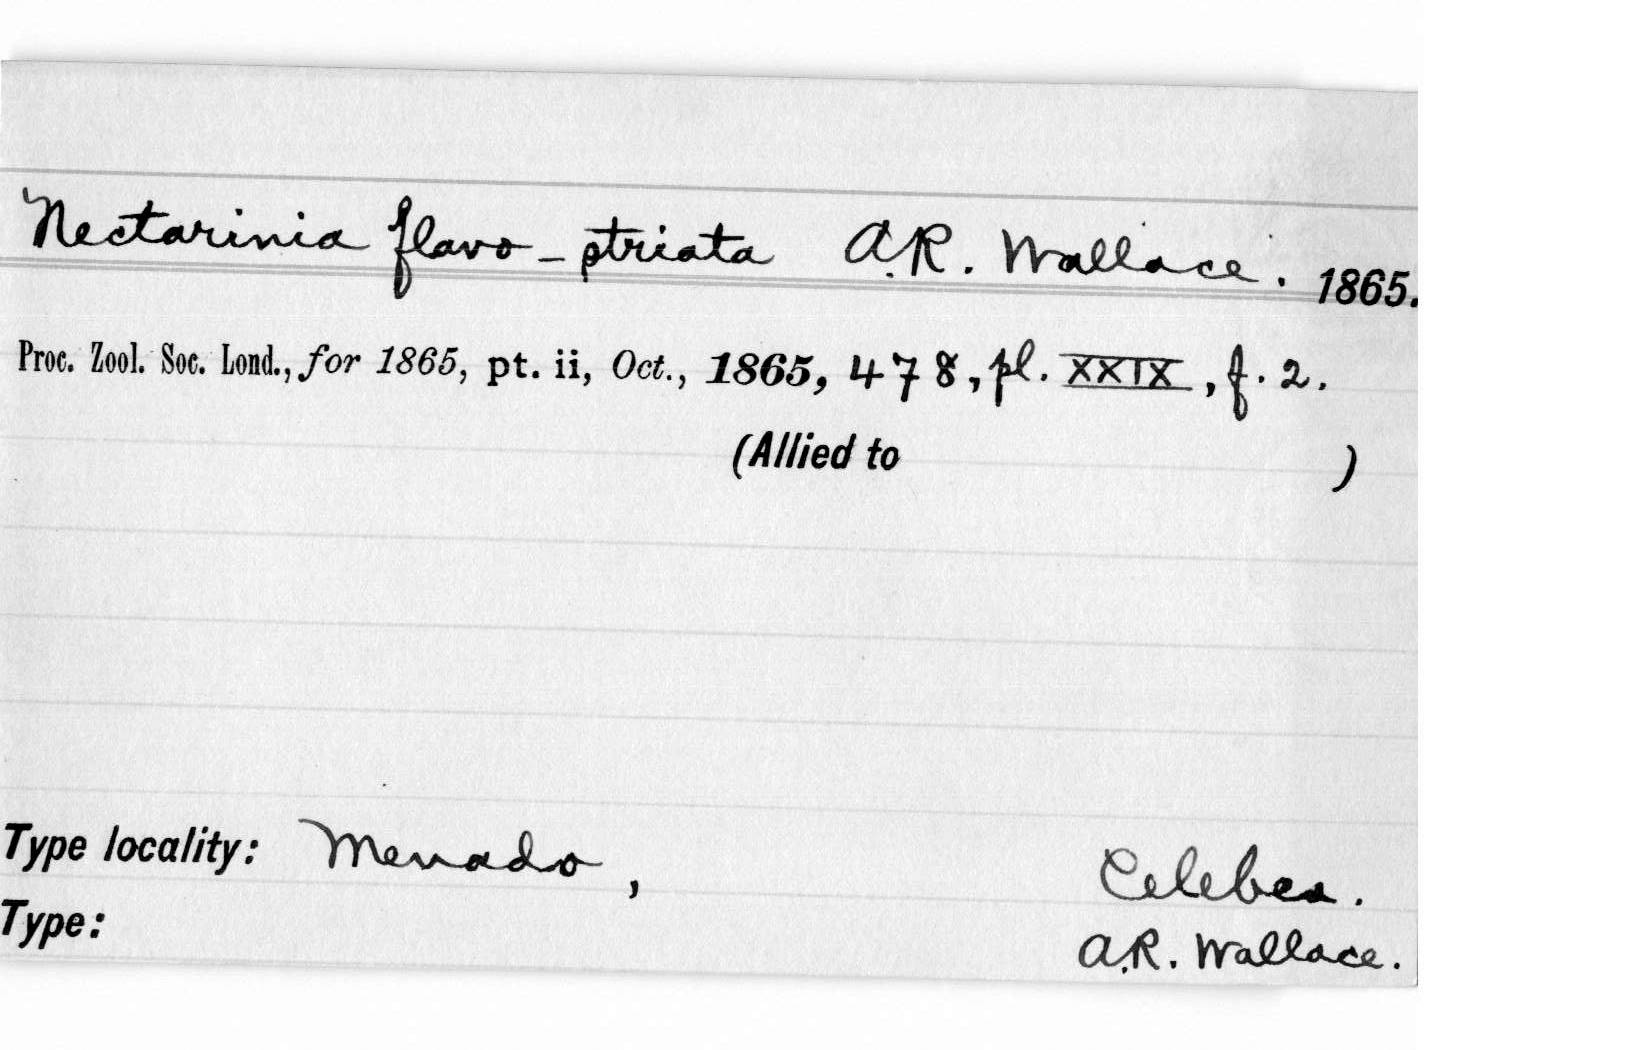 Nectarinia flavo-striata A.R. Wallace. 1865.
Proc. Zool. Soc. Lond., for 1865, pt. ii, Oct., 1865, 478, pl. XXIX, f. 2.
(Allied to )
Type locality: Menado, Celebes.
Type: A.R. Wallace.